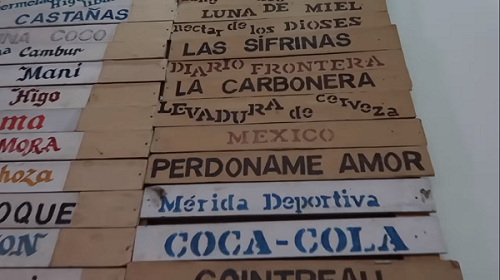 CASTAÑAS
COCO
Cambur
Mani
Higo
MORA
LUNA DE MIEL
nectar de los DIOSES
LAS SIFRINAS
DIARIO FRONTERA
LA CARBONERA
LEVADURA de cerveza
MEXICO
PERDONAME AMOR
Mérida Deportiva
COCA-COLA
COINTREAU